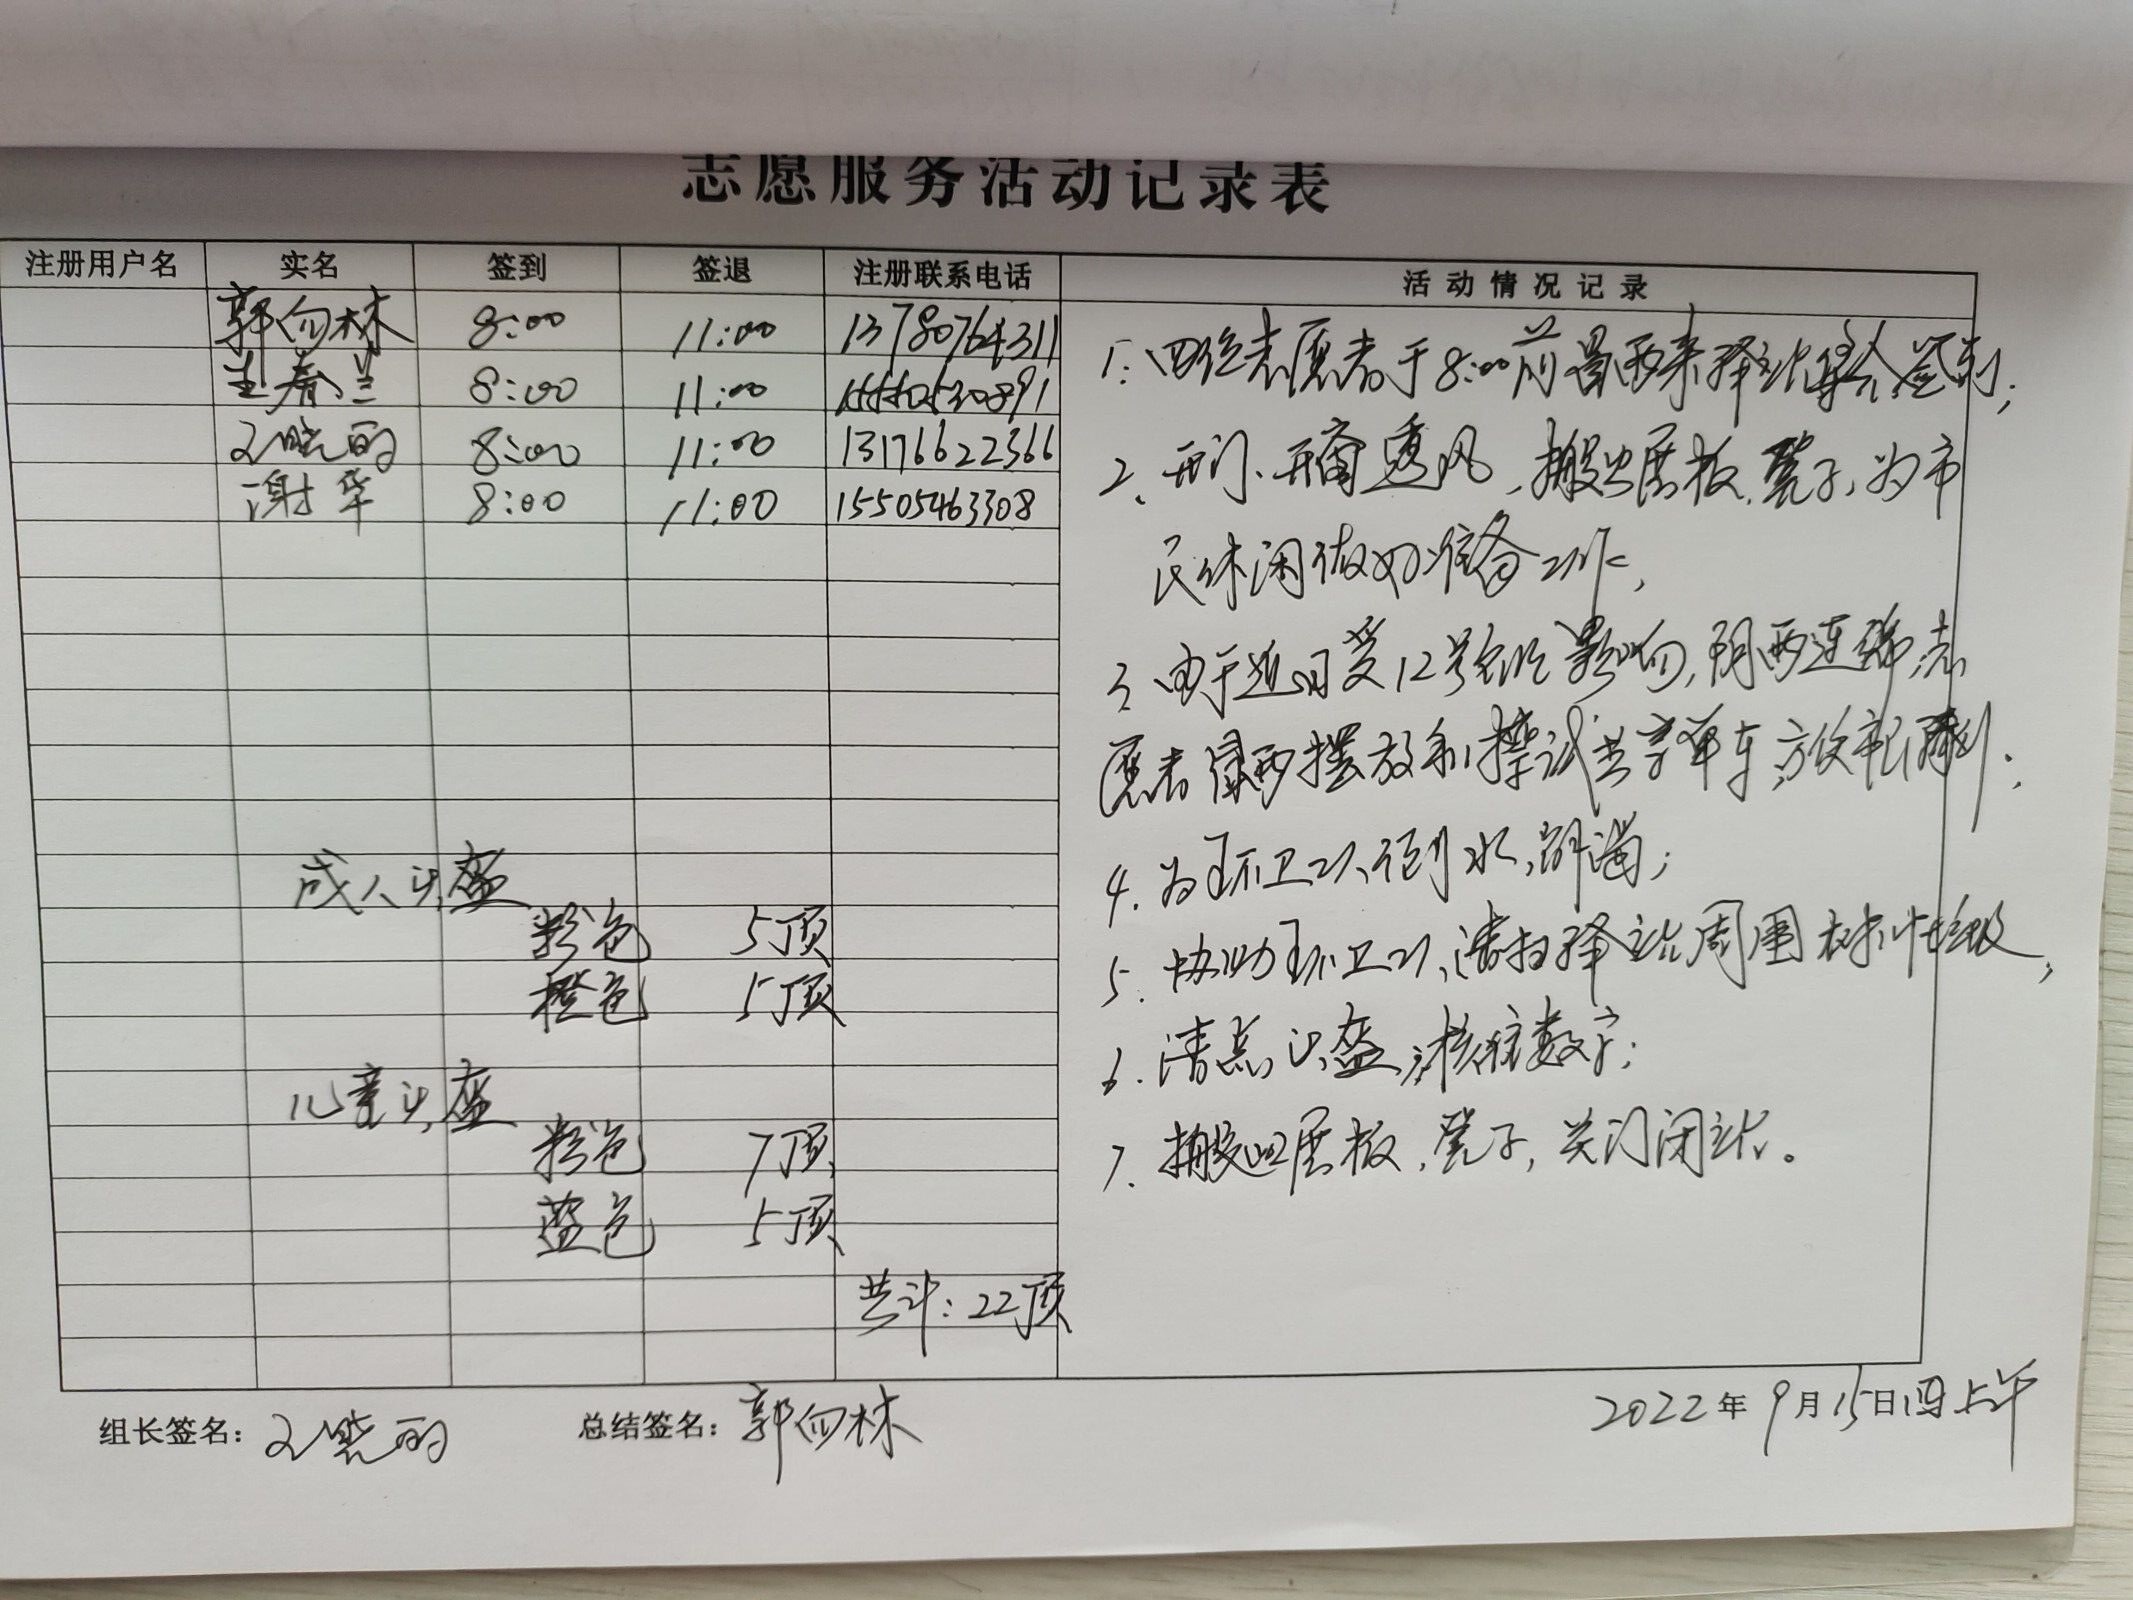 志愿服务活动记录表
注册用户名 实名 签到 签退 注册联系电话 活动情况记录
郭向林 8:00 11:00 13780764311
春兰 8:00 11:00
晓丽 8:00 11:00 13176622366
谢华 8:00 11:00 15505463308
成人头盔
粉色 5顶
橙色 5顶
儿童头盔
粉色 7顶
蓝色 5顶
共计:22顶
1.四位志愿者于8:00前冒雨来驿站集合签到;
2、开门、开窗透风,搬出展板、凳子,为市
民休闲做好准备工作,
3、由于近日受12号台风影响,阴雨连绵,志
愿者冒雨摆放和擦试共享单车,方便市民
4.为环卫工人倒水,解渴;
5.协助环卫工人清扫驿站周围树叶垃圾,
6.清点头盔,核准数字;
7.搬回展板,凳子,关门闭站。
组长签名: 晓丽 总结签名:郭向林 2022年9月15日四上午